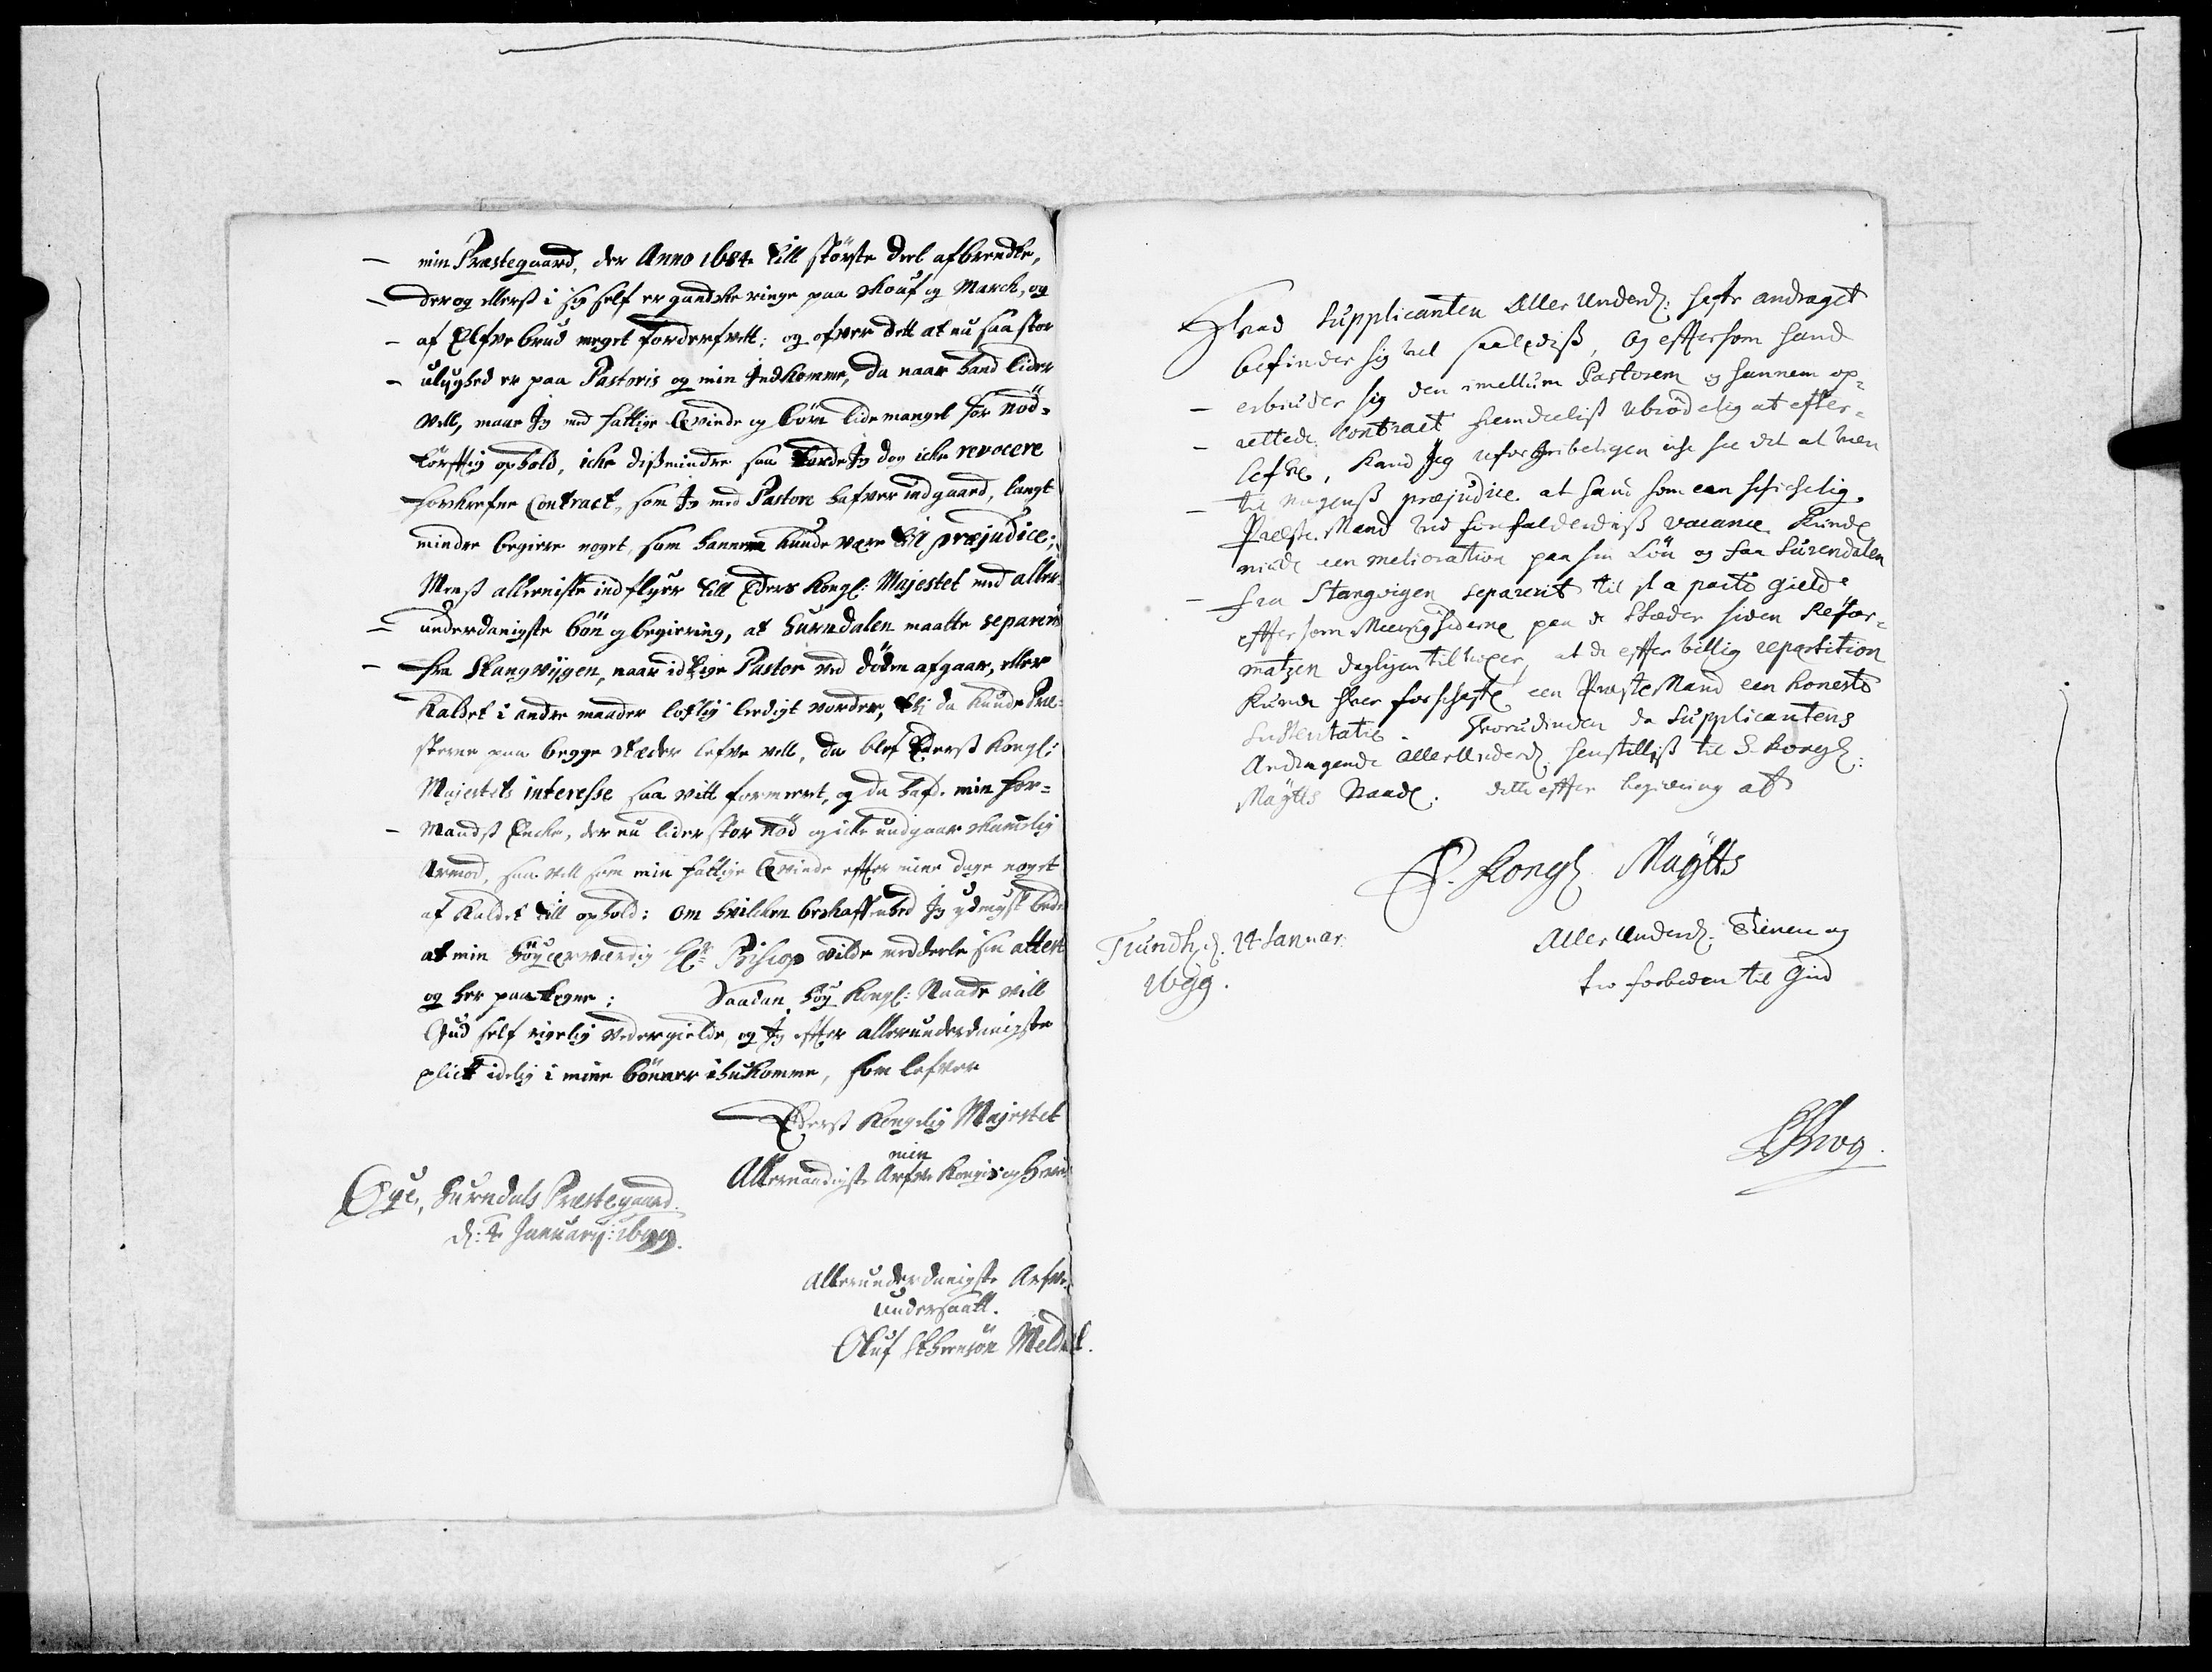 min Præstegaard, der Anno 1684 till største deel afbrendte,
der og ellers i sig self er gandske ringe paa skouf og March, og
af Elfvebrud meget forderfvett; og ofver dett at nu saa stor
ulyghed er paa Pastoris og min Indkomme, da naar hand lider
vell, maae Jeg med fattige Qvinde og børn lide mangel for nød-
tørfftig ophold, icke dissmindre saa torde Jeg dog icke revocere
forskrefne Contract, som Jeg med Pastore hafver indgaard, langt
mindre begiere noget, som hannem kunde være till præjudice;
Menss alleeniste indflyer till Eders Kongl: Majestet med aller-
underdanigste bøn og begiering, at Surndalen maatte separeris
fra Stangvijgen, naar idtzige Pastor ved døden afgaar, eller
Kaldet i andre maader loflig ledigt vorder, thi da kunde Præ-
sterne paa begge stæder lefve vell, da blef Ederss Kongl:
Majestets interesse saa vitt formeret, og da hafde min for-
Mandss Encke, der nu lider stor nød og icke undgaar skammelig
Armod, saa vell som min fattige Qvinde effter mine dage noget
af Kaldet till ophold: om hvilcken beskaffenhed Jeg ydmygst beder
at min Høyærværdig Hr Biscop vilde meddeele sin attest
og her paa tegne; Saadan høy Kongl: Naade vill
Gud self rigelig vedergielde, og Jeg effter allerunderdanigste
plict idelig i mine bønner ihukomme, som lefver
Ederss Kongelig Majestet
min
Allernaadigste Arfve Kongis og Herris
Øye, Surndals Præstegaard.
d: 4 January: 1699.
Allerunderdanigste Arfve
undersaatt.
Oluf Meldal.
Hvad Supplicanten Aller Underd: hafr andraget
befinder sig vel saalediss, Og efftersom hand
erbiuder sig den imellum Pastorem og hannem op-
rettede Contract fremdeeliss ubrødelig at effter-
lefve, kand Jeg uforgribeligen icke see det at være
til nogenss præjudice at hand som een schickelig
Præste Mand ved forfaldendiss vacance kunde
niude een melioration paa sin Løn og faa Surendalen
fra Stangvigen separerit til it a parte gield
effter som Meenighederne paa de stæder siden Refor-
matzen dagligen tilvoxer, at de effter billig repartition
kunde hver forschaffe een Præste Mand een honesto
Sustentatie. Hvorudinden da Supplicantens
Andragende allerUnderd. henstilliss til E. Kongl:
Maytts Naade. dette effter begiering af
E. Kongl Maytts
Trundh. d. 14 Januar:
1699.
Aller Underd: Tienere og
tro forbeder til Gud